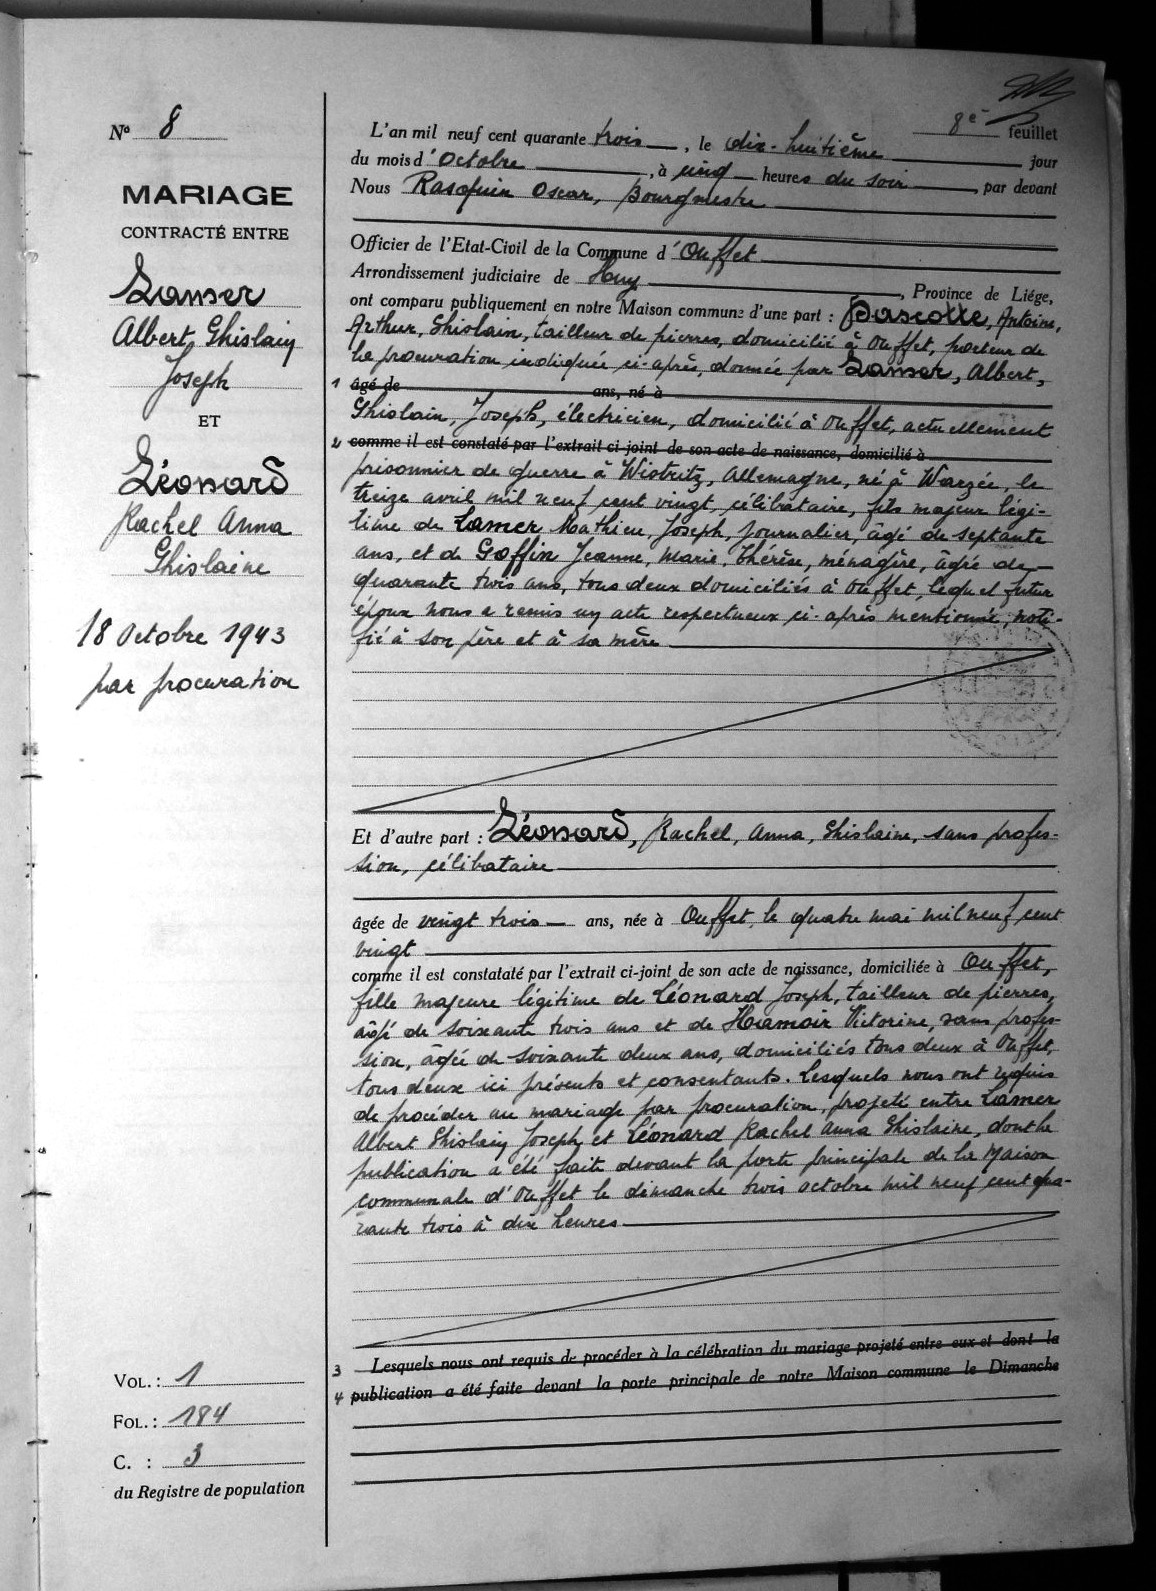 8e feuillet
N° 8
MARIAGE
CONTRACTÉ ENTRE
Lamer
Albert Ghislain
Joseph
ET
Léonard
Rachel Anna
Ghislaine
18 Octobre 1943
par procuration
VOL. : 1
FOL. : 184
C. : 3
du Registre de population
L'an mil neuf cent quarante trois, le dix-huitième jour
du mois d'Octobre, à cinq heures du soir, par devant
Nous Rasquin Oscar, Bourgmestre
Officier de l'Etat-Civil de la Commune d'Ouffet
Arrondissement judiciaire de Huy, Province de Liége,
ont comparu publiquement en notre Maison commune d'une part : Bascolle, Antoine,
Arthur, Ghislain, tailleur de pierres, domicilié à Ouffet, porteur de
la procuration indiquée ci-après, donnée par Lamer, Albert,
1 âgé de ans, né à
Ghislain, Joseph, électricien, domicilié à Ouffet, actuellement
2 comme il est constaté par l'extrait ci-joint de son acte de naissance, domicilié à
prisonnier de guerre à Wistritz, Allemagne, né à Warzée, le
treize avril mil neuf cent vingt, célibataire, fils majeur légi-
time de Lamer Mathieu, Joseph, journalier, âgé de septante
ans, et de Goffin Jeanne, Marie, Thérèse, ménagère, âgée de
quarante trois ans, tous deux domiciliés à Ouffet, lequel futur
époux nous a remis un acte respectueux ci-après mentionné, noti-
fié à son père et à sa mère
Et d'autre part : Léonard, Rachel, Anna, Ghislaine, sans profes-
sion, célibataire
âgée de vingt trois ans, née à Ouffet, le quatre mai mil neuf cent
vingt
comme il est constataté par l'extrait ci-joint de son acte de naissance, domiciliée à Ouffet,
fille majeure légitime de Léonard Joseph, tailleur de pierres,
âgé de soixante trois ans et de Hamoir Victorine, sans profes-
sion, âgée de soixante deux ans, domiciliés tous deux à Ouffet,
tous deux ici présents et consentants. Lesquels nous ont requis
de procéder au mariage par procuration, projeté entre Lamer
Albert Ghislain Joseph et Léonard Rachel Anna Ghislaine, dont la
publication a été faite devant la porte principale de la Maison
communale d'Ouffet le dimanche trois octobre mil neuf cent qua-
rante trois à dix heures
3 Lesquels nous ont requis de procéder à la célébration du mariage projeté entre eux et dont la
4 publication a été faite devant la porte principale de notre Maison commune le Dimanche